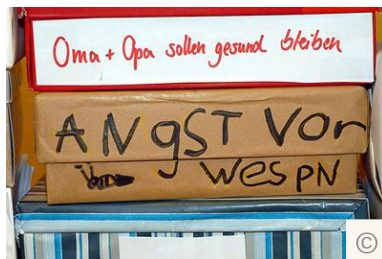 Oma + Opa sollen gesund bleiben
ANgST VOr
WesPN
©